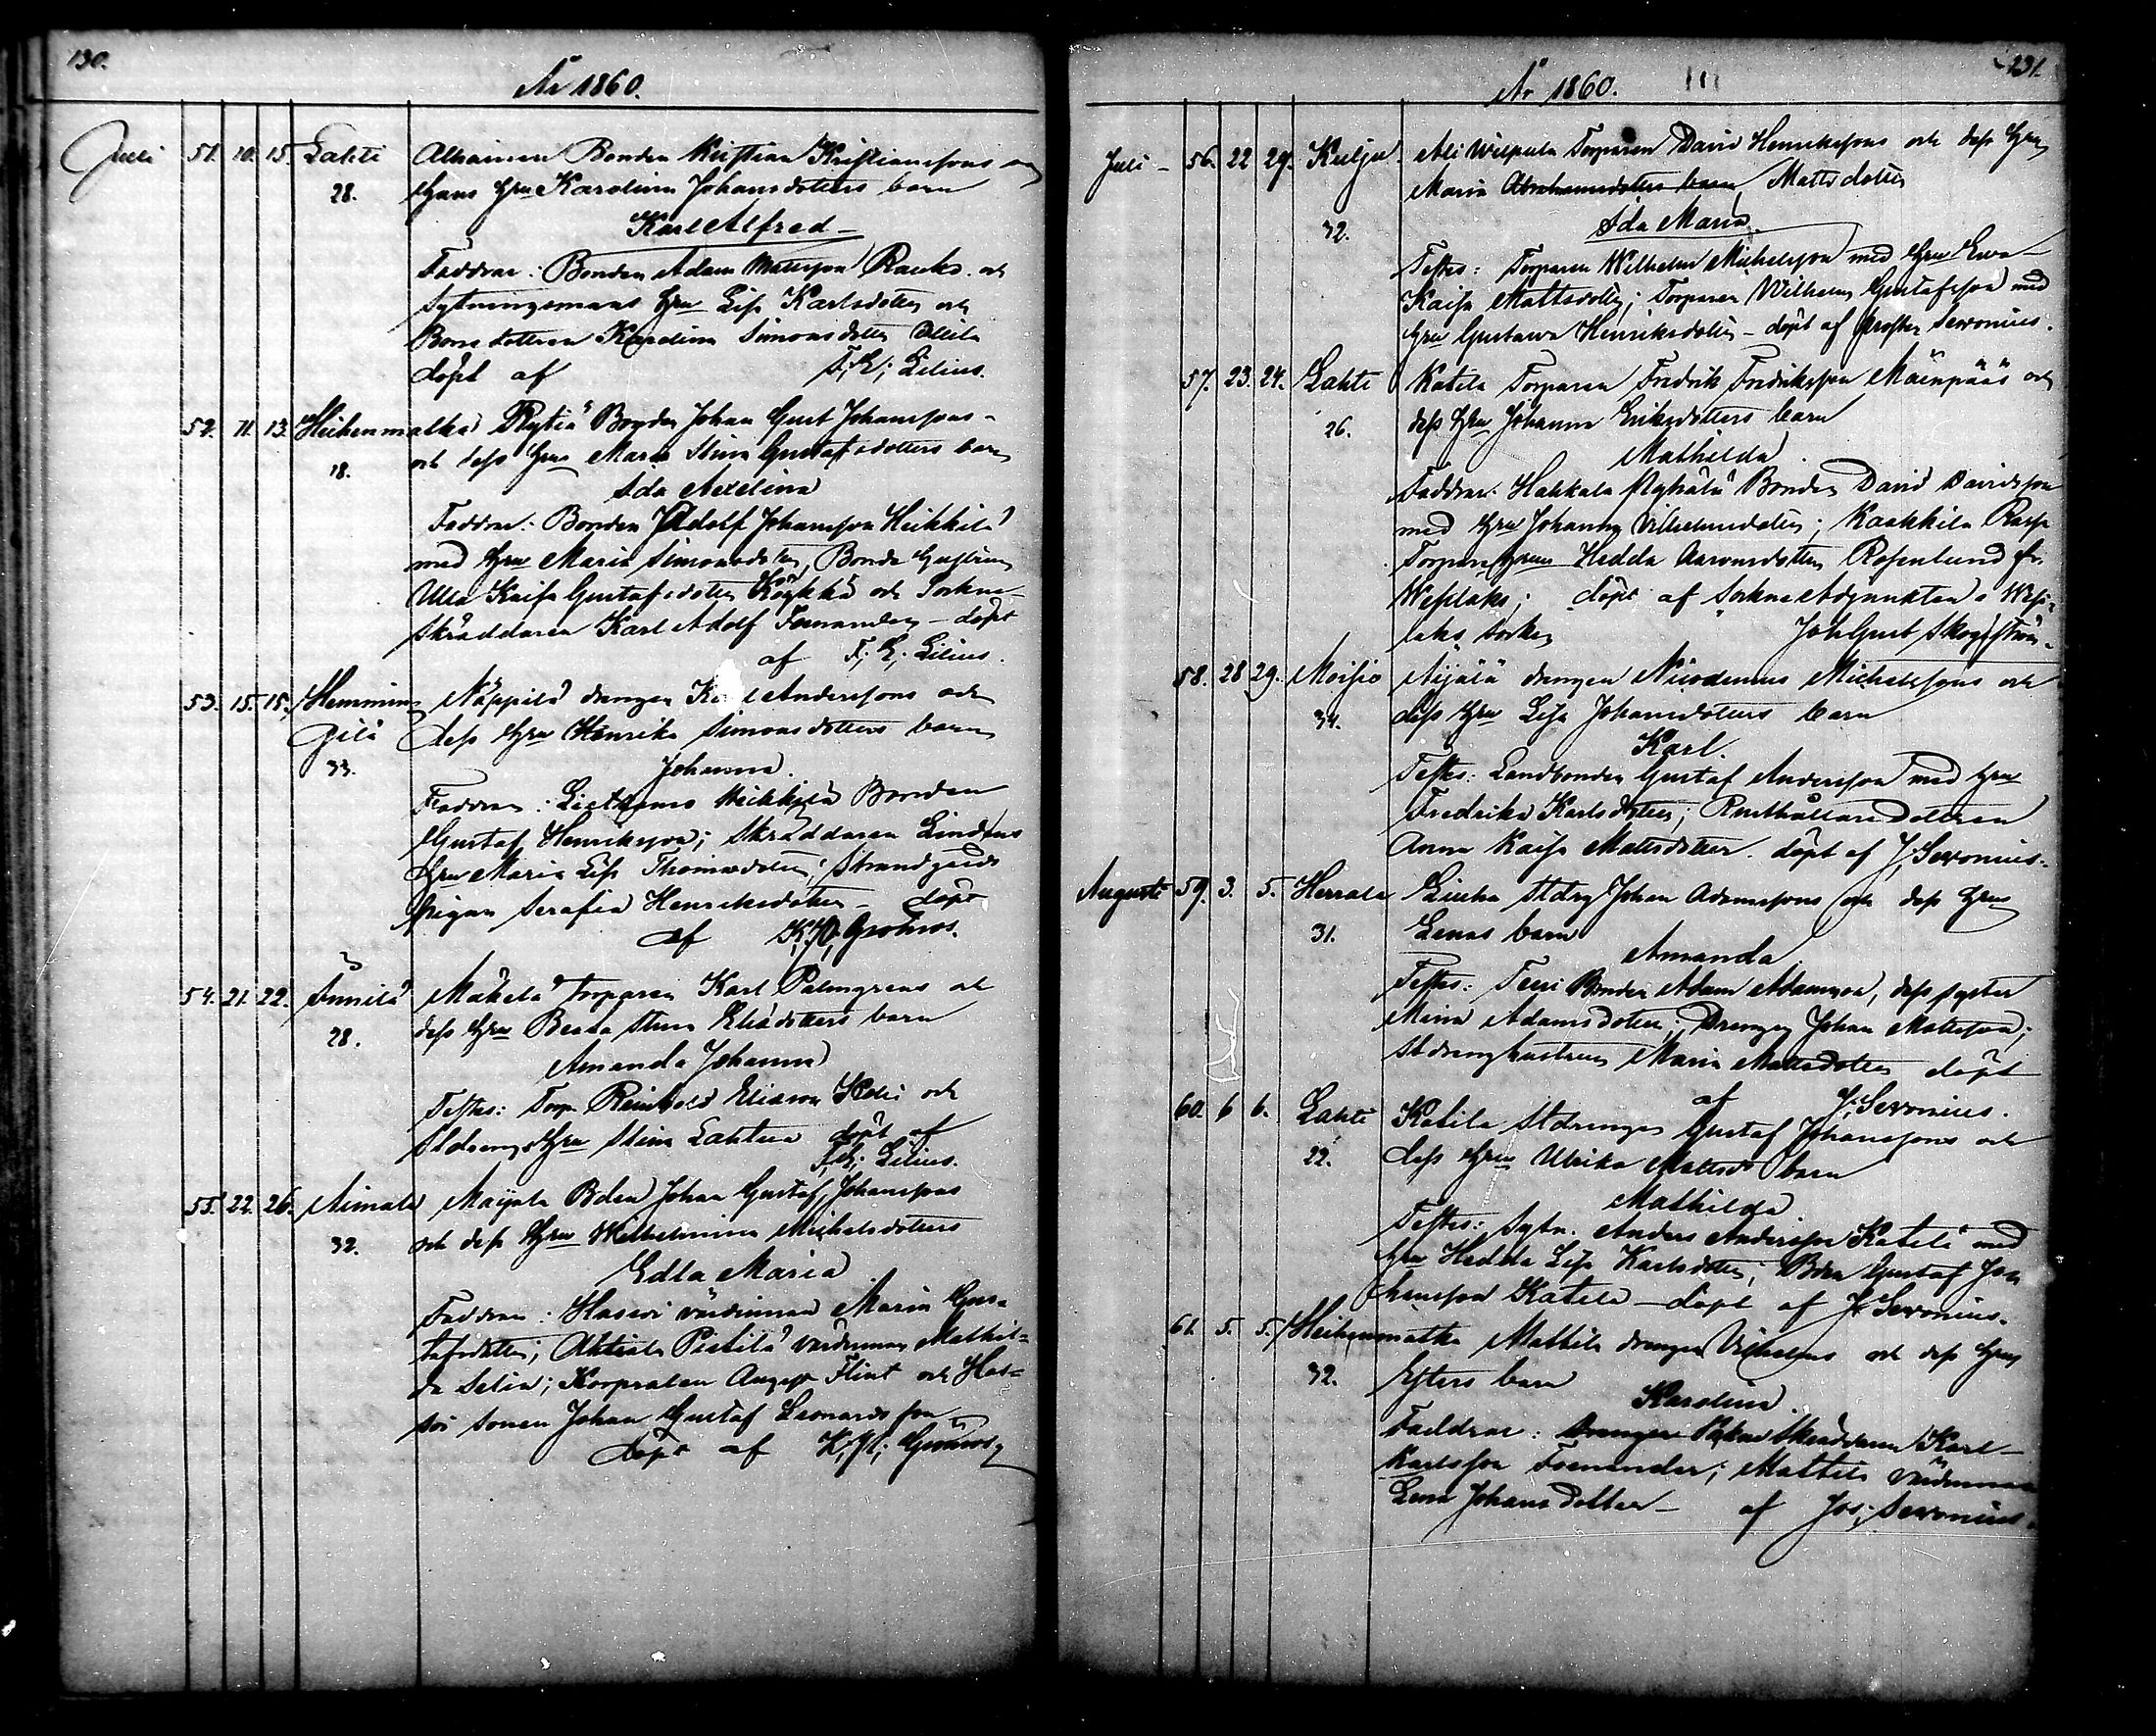 130.
År 1860.
Juli 51. 10. 15. Lahti Alhainen Bonden Kristian Kristianssons och
28. hans Hru Karolina Johansdotters barn
Karl Alfred
Faddrar: Bonden Adam Mattsson Rauko och
Sytningsmans Hru Lisa Karlsdotter och
Bonddottren Karolina Simonsdotter
döpt af F. E. Lilius.
52. 11. 13. Heikenmatka Rytiä Bonden Johan Gust Johanssons
18. och dess Hru Maria Stina Gustafsdotters barn
Ida Axelina
Faddrar: Bonden Adolf Johansson Heikkilä
med Hru Maria Simonsdotter, Bonde Hustrun
Ulla Kaisa Gustafsdotter Köykkä och Sockne-
skräddaren Karl Adolf Fornander döpt
af F. E. Lilius.
53. 15. 15. Hemmin Näppilä drengen Karl Anderssons och
gilä dess Hru Henrika Simonsdotters barn
33. Johanna.
Faddrar: Liettsamo Heikkilä Bonden
Gustaf Henriksson; Skräddaren Lindens
Hru Maria Lisa Thomasdotter; Strandgårds
pigan Serafia Henriksdotter döpt
af K. H. Grönros.
54. 21. 22. Sunnilä Mäkelä torparen Karl Palmgrens och
28. dess Hru Beata Stina Eliædotters barn
Amanda Johanna
Testes: Torp. Reinhold Eliæson och
Stdrengs Hru Stina döpt af
F. E. Lilius.
55. 22. 26. Aimala Maijala Bden Johan Gustaf Johanssons
32. och dess Hru Wilhelmina Michelsdotters
Edla Maria
Faddrar: Hassoi värdinnan Maria Gus-
tafsdotter; Ahtiala Pietilä värdinnan Mathil-
da Selin; Korpralen August Flint och Has-
soi sonen Johan Gustaf Leonardsson
döpt af K. H. Grönros
131.
År 1860.
Juli - 56. 22 29. Kulju Ali Wilpula Torparen David Henrikssons och dess Hru
Maria Abrahamsdotters barn Mattsdotter
32. Ida Maria.
Testes: Torparen Wilhelm Michelsson med Hru Eva
Kaisa Mattsdotter; Torparen Wilhelm Gustafsson med
Hru Gustava Henriksdotter döpt af Prosten Sevonius.
57. 23. 24. Lahti Katila Torparen Fredrik Fredriksson Mäenpääs och
26. dess Hru Johanna Eriksdotters barn
Mathilda.
Faddrar: Hakkala Bonden David Davidsson
med Hru Johanna Vilhelmsdotter; Kaakkila
Torpare Hrun Hedda Aaronsdotter Rosenlund fr.
Wesilaks; döpt af Sockne Adjunkten i Wesi-
laks socken Joh Gust Skogström.
58. 28 29. Moisio Äijälä drengen Nicodemus Michelssons och
34. dess Hru Lisa Johansdotters barn
Karl.
Testes: Landbonden Gustaf Andersson med Hru
Fredrika Karlsdotter; Rusthållaredottren
Anna Kaisa Mattsdotter. döpt af J. Sevonius.
Augusti 59. 3. 5. Herrala Stdrg Johan Adamssons och dess Hrus
31. Lenas barn
Amanda
Testes: Bonden Adam Adamsson, dess syster
Mina Adamsdotter; Drengen Johan Mattsson;
Stdrenghustrun Maria Mattsdotter döpt
af J. Sevonius.
60. 6 6. Lahti Katila Stdrengen Gustaf Johanssons och
22. dess Hru Ulrika Mattsds barn
Mathilda
Testes: Sytn. Anders Andersson Katila med
Hru Hedda Lisa Karlsdotter; Bden Gustaf Jo-
hansson Katila döpt af J. Sevonius.
61. 5. 5. Heikenmatka Mattila drengen Vilhelms och dess Hru
32. Esters barn
Karolina
Faddrar: Drengen Skräddaren Karl
Karlsson Fornander; Mattila värdinnan
Lena Johansdotter af Jos. Sevonius.